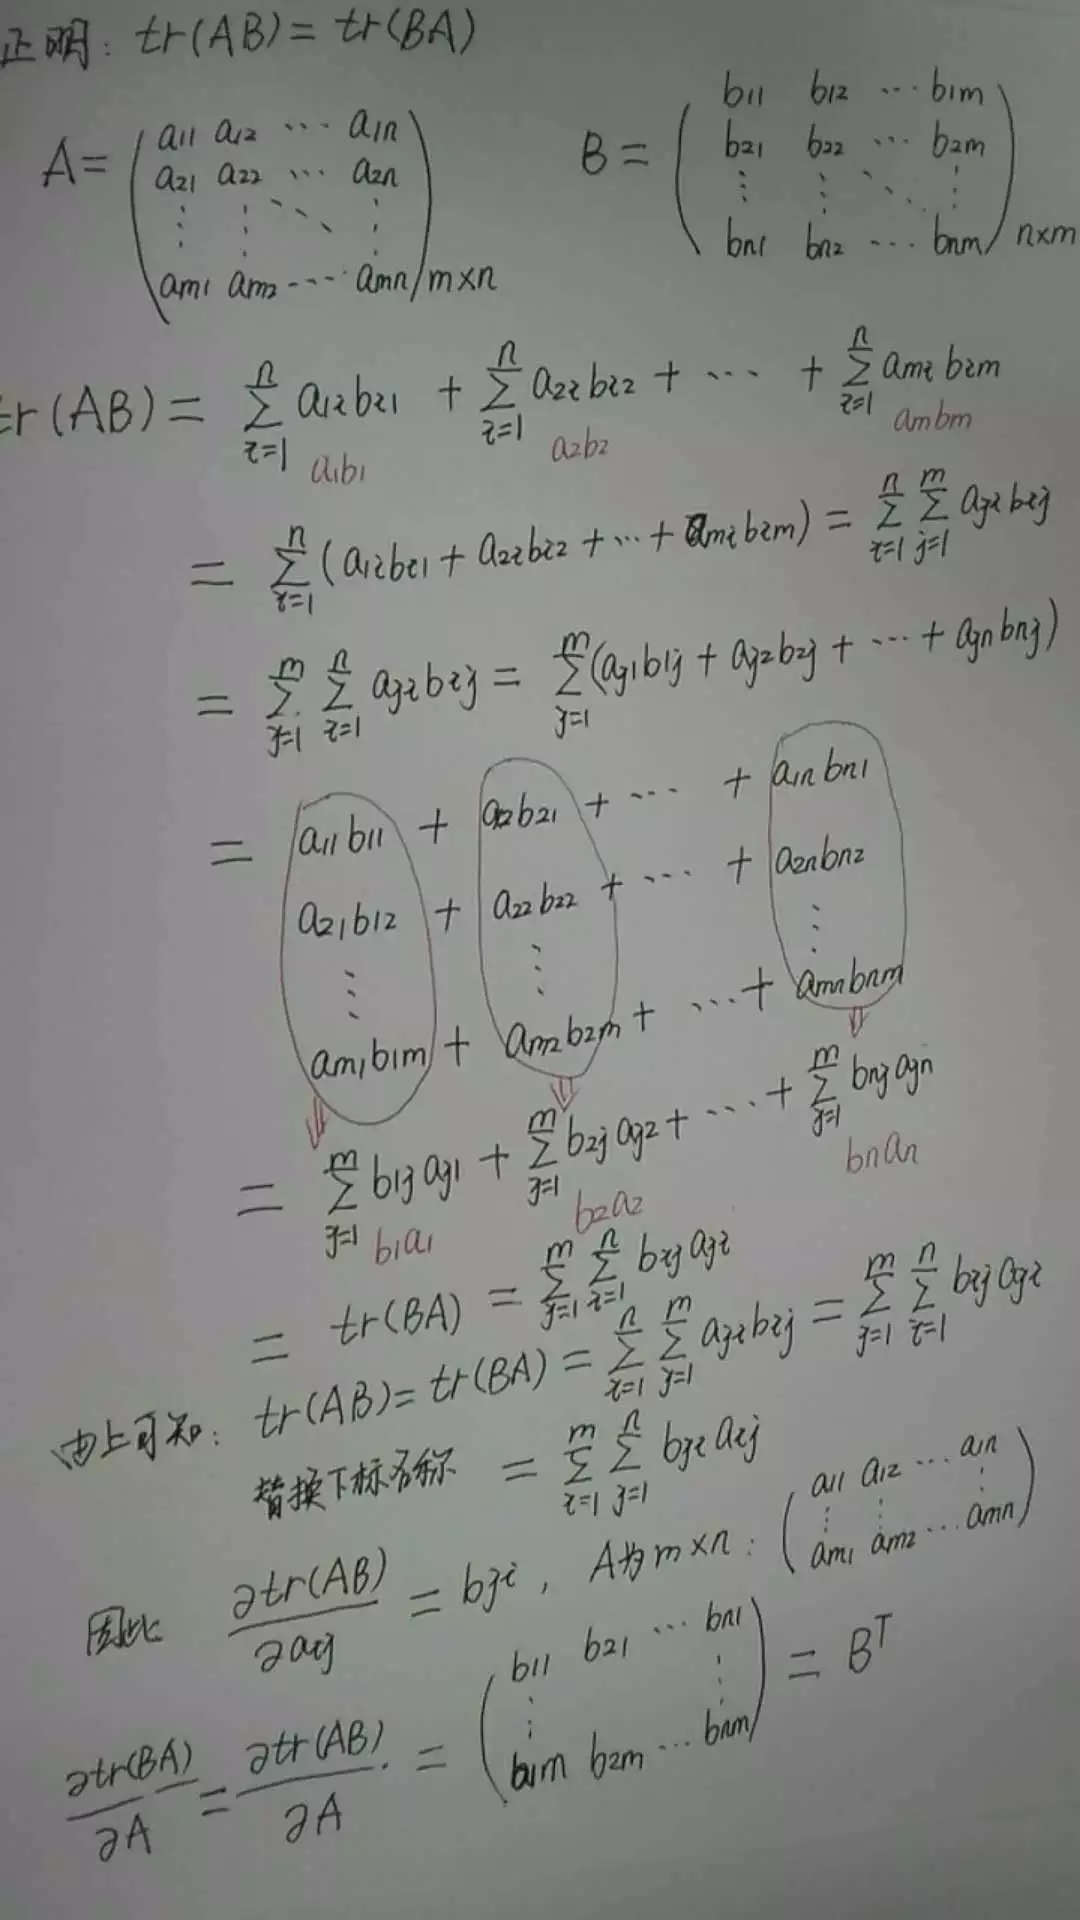 证明: tr(AB) = tr(BA)
A = ( a11 a12 ⋯ a1n
a21 a22 ⋯ a2n
⋮ ⋮ ⋱ ⋮
am1 am2 ⋯ amn ) m×n
B = ( b11 b12 ⋯ b1m
b21 b22 ⋯ b2m
⋮ ⋮ ⋱ ⋮
bn1 bn2 ⋯ bnm ) n×m
tr(AB) = ∑_{i=1}^{n} a1i bi1 + ∑_{i=1}^{n} a2i bi2 + ⋯ + ∑_{i=1}^{n} ami bim
a1b1 a2b2 ambm
= ∑_{i=1}^{n} (a1i bi1 + a2i bi2 + ⋯ + ami bim) = ∑_{i=1}^{n} ∑_{j=1}^{m} aji bij
= ∑_{j=1}^{m} ∑_{i=1}^{n} aji bij = ∑_{j=1}^{m} (aj1 b1j + aj2 b2j + ⋯ + ajn bnj)
= a11 b11 + a12 b21 + ⋯ + a1n bn1
a21 b12 + a22 b22 + ⋯ + a2n bn2
⋮ ⋮ ⋮
am1 b1m + am2 b2m + ⋯ + amn bnm
= ∑_{j=1}^{m} b1j aj1 + ∑_{j=1}^{m} b2j aj2 + ⋯ + ∑_{j=1}^{m} bnj ajn
b1a1 b2a2 bnan
= tr(BA) = ∑_{j=1}^{m} ∑_{i=1}^{n} bij aji
由上可知: tr(AB) = tr(BA) = ∑_{i=1}^{n} ∑_{j=1}^{m} aji bij = ∑_{j=1}^{m} ∑_{i=1}^{n} bij aji
替换下标名称 = ∑_{i=1}^{m} ∑_{j=1}^{n} bji aij
因此 ∂tr(AB)/∂aij = bji , A为m×n: ( a11 a12 ⋯ a1n
⋮ ⋮ ⋮
am1 am2 ⋯ amn )
∂tr(BA)/∂A = ∂tr(AB)/∂A = ( b11 b21 ⋯ bn1
⋮ ⋮
b1m b2m ⋯ bnm ) = B^T